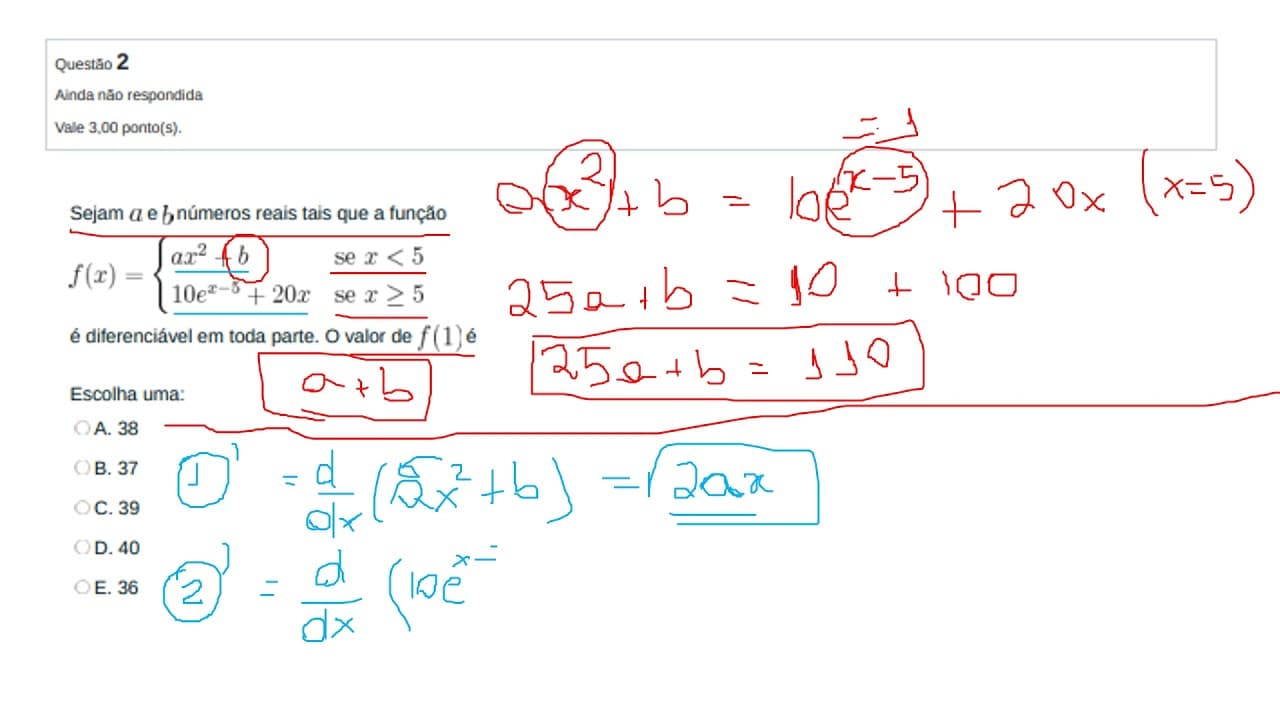 Questão 2
Ainda não respondida
Vale 3,00 ponto(s).
Sejam a e b números reais tais que a função
f(x) = { ax² + b se x < 5
10e^{x−5} + 20x se x ≥ 5
é diferenciável em toda parte. O valor de f(1) é
a+b
Escolha uma:
A. 38
B. 37
C. 39
D. 40
E. 36
= 1
ax² + b = 10e^{x−5} + 20x (x=5)
25a+b = 10 + 100
25a+b = 110
1' = d/dx (ax²+b) = 2ax
2' = d/dx (10e^{x−